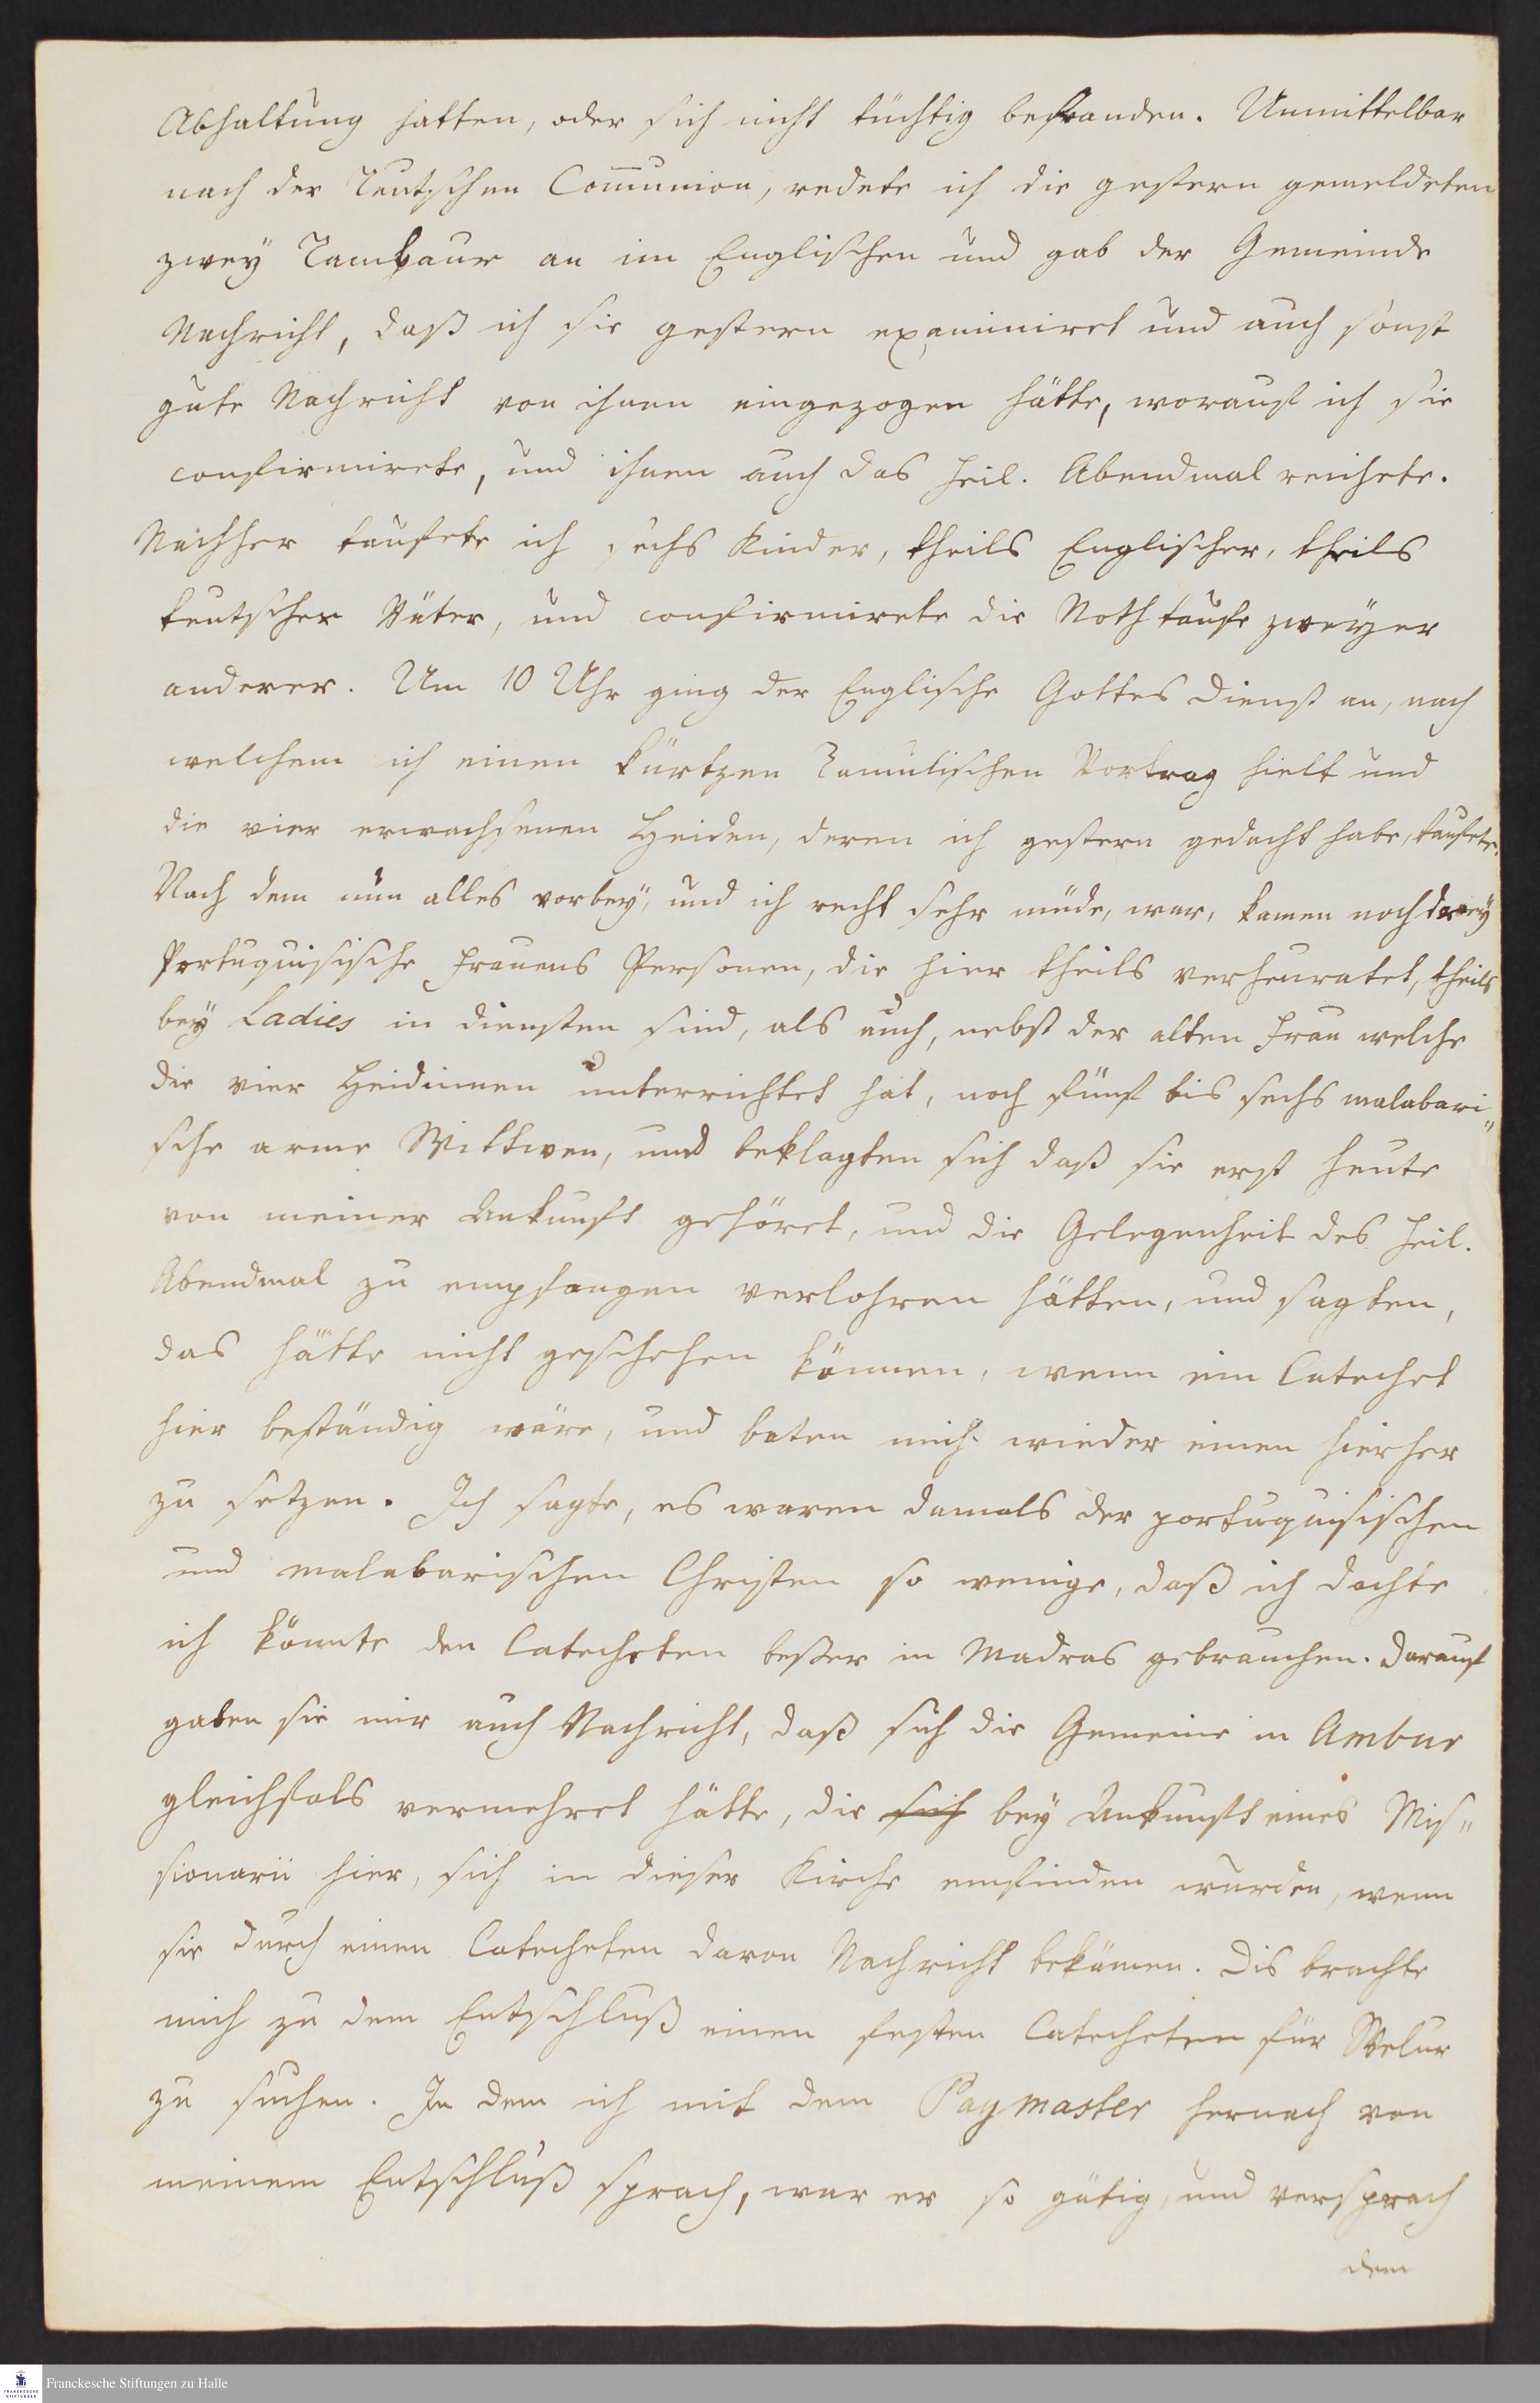 Abhaltung hatten, oder sich nicht tüchtig befanden. Unmittelbar
nach der Teutschen Com̄union, redete ich die gestern gemeldeten
zwey Tambour an im Englischen und gab der Gemeinde
Nachricht, daß ich sie gestern examiniret und auch sonst
gute Nachricht von ihnen eingezogen hätte, worauf ich sie
confirmirete, und ihnen auch das heil. Abendmal reichete.
Nachher taufete ich sechs Kinder, theils Englischer, theils
teutscher Väter, und confirmirete die Nothtaufe zweyer
anderer. Um 10 Uhr ging der Englische Gottes Dienst an, nach
welchem ich einen kürtzen Tamulischen Vortrag hielt und
die vier erwachsenen Heiden, deren ich gestern gedacht habe, taufete.
Nach dem nun alles vorbey, und ich recht sehr müde, war, kamen noch drey
Portuguisische Frauens Personen, die hier theils verheuratet, theils
bey Ladies in diensten sind, als auch, nebst der alten Frau welche
die vier Heidinnen unterrichtet hat, noch fünf bis sechs malabari„
sche arme Wittwen, und beklagten sich daß sie erst heute
von meiner Ankunft gehöret, und die Gelegenheit des heil.
Abendmal zu empfangen verlohren hätten, und sagten,
das hätte nicht geschehen können, wenn ein Catechet
hier beständig wäre, und baten mich wieder einen hierher
zu setzen. Ich sagte, es waren damals der portuguisischen
und malabarischen Christen so wenige, daß ich dachte
ich könnte den Catecheten beßer in Madras gebrauchen. Darauf
gaben sie mir auch Nachricht, daß sich die Gemeine in Ambur
gleichfals vermehret hätte, die sich bey Ankunft eines Mis„
sionarii hier, sich in dieser Kirche einfinden wurden, wenn
sie durch einen Catecheten davon Nachricht bekämen. Dis brachte
mich zu dem Entschluß einen festen Catecheten für Welur
zu suchen. In dem ich mit dem Paymaster hernach von
meinem Entschluß sprach, war er so gütig, und versprach
dem
Franckesche Stiftungen zu Halle